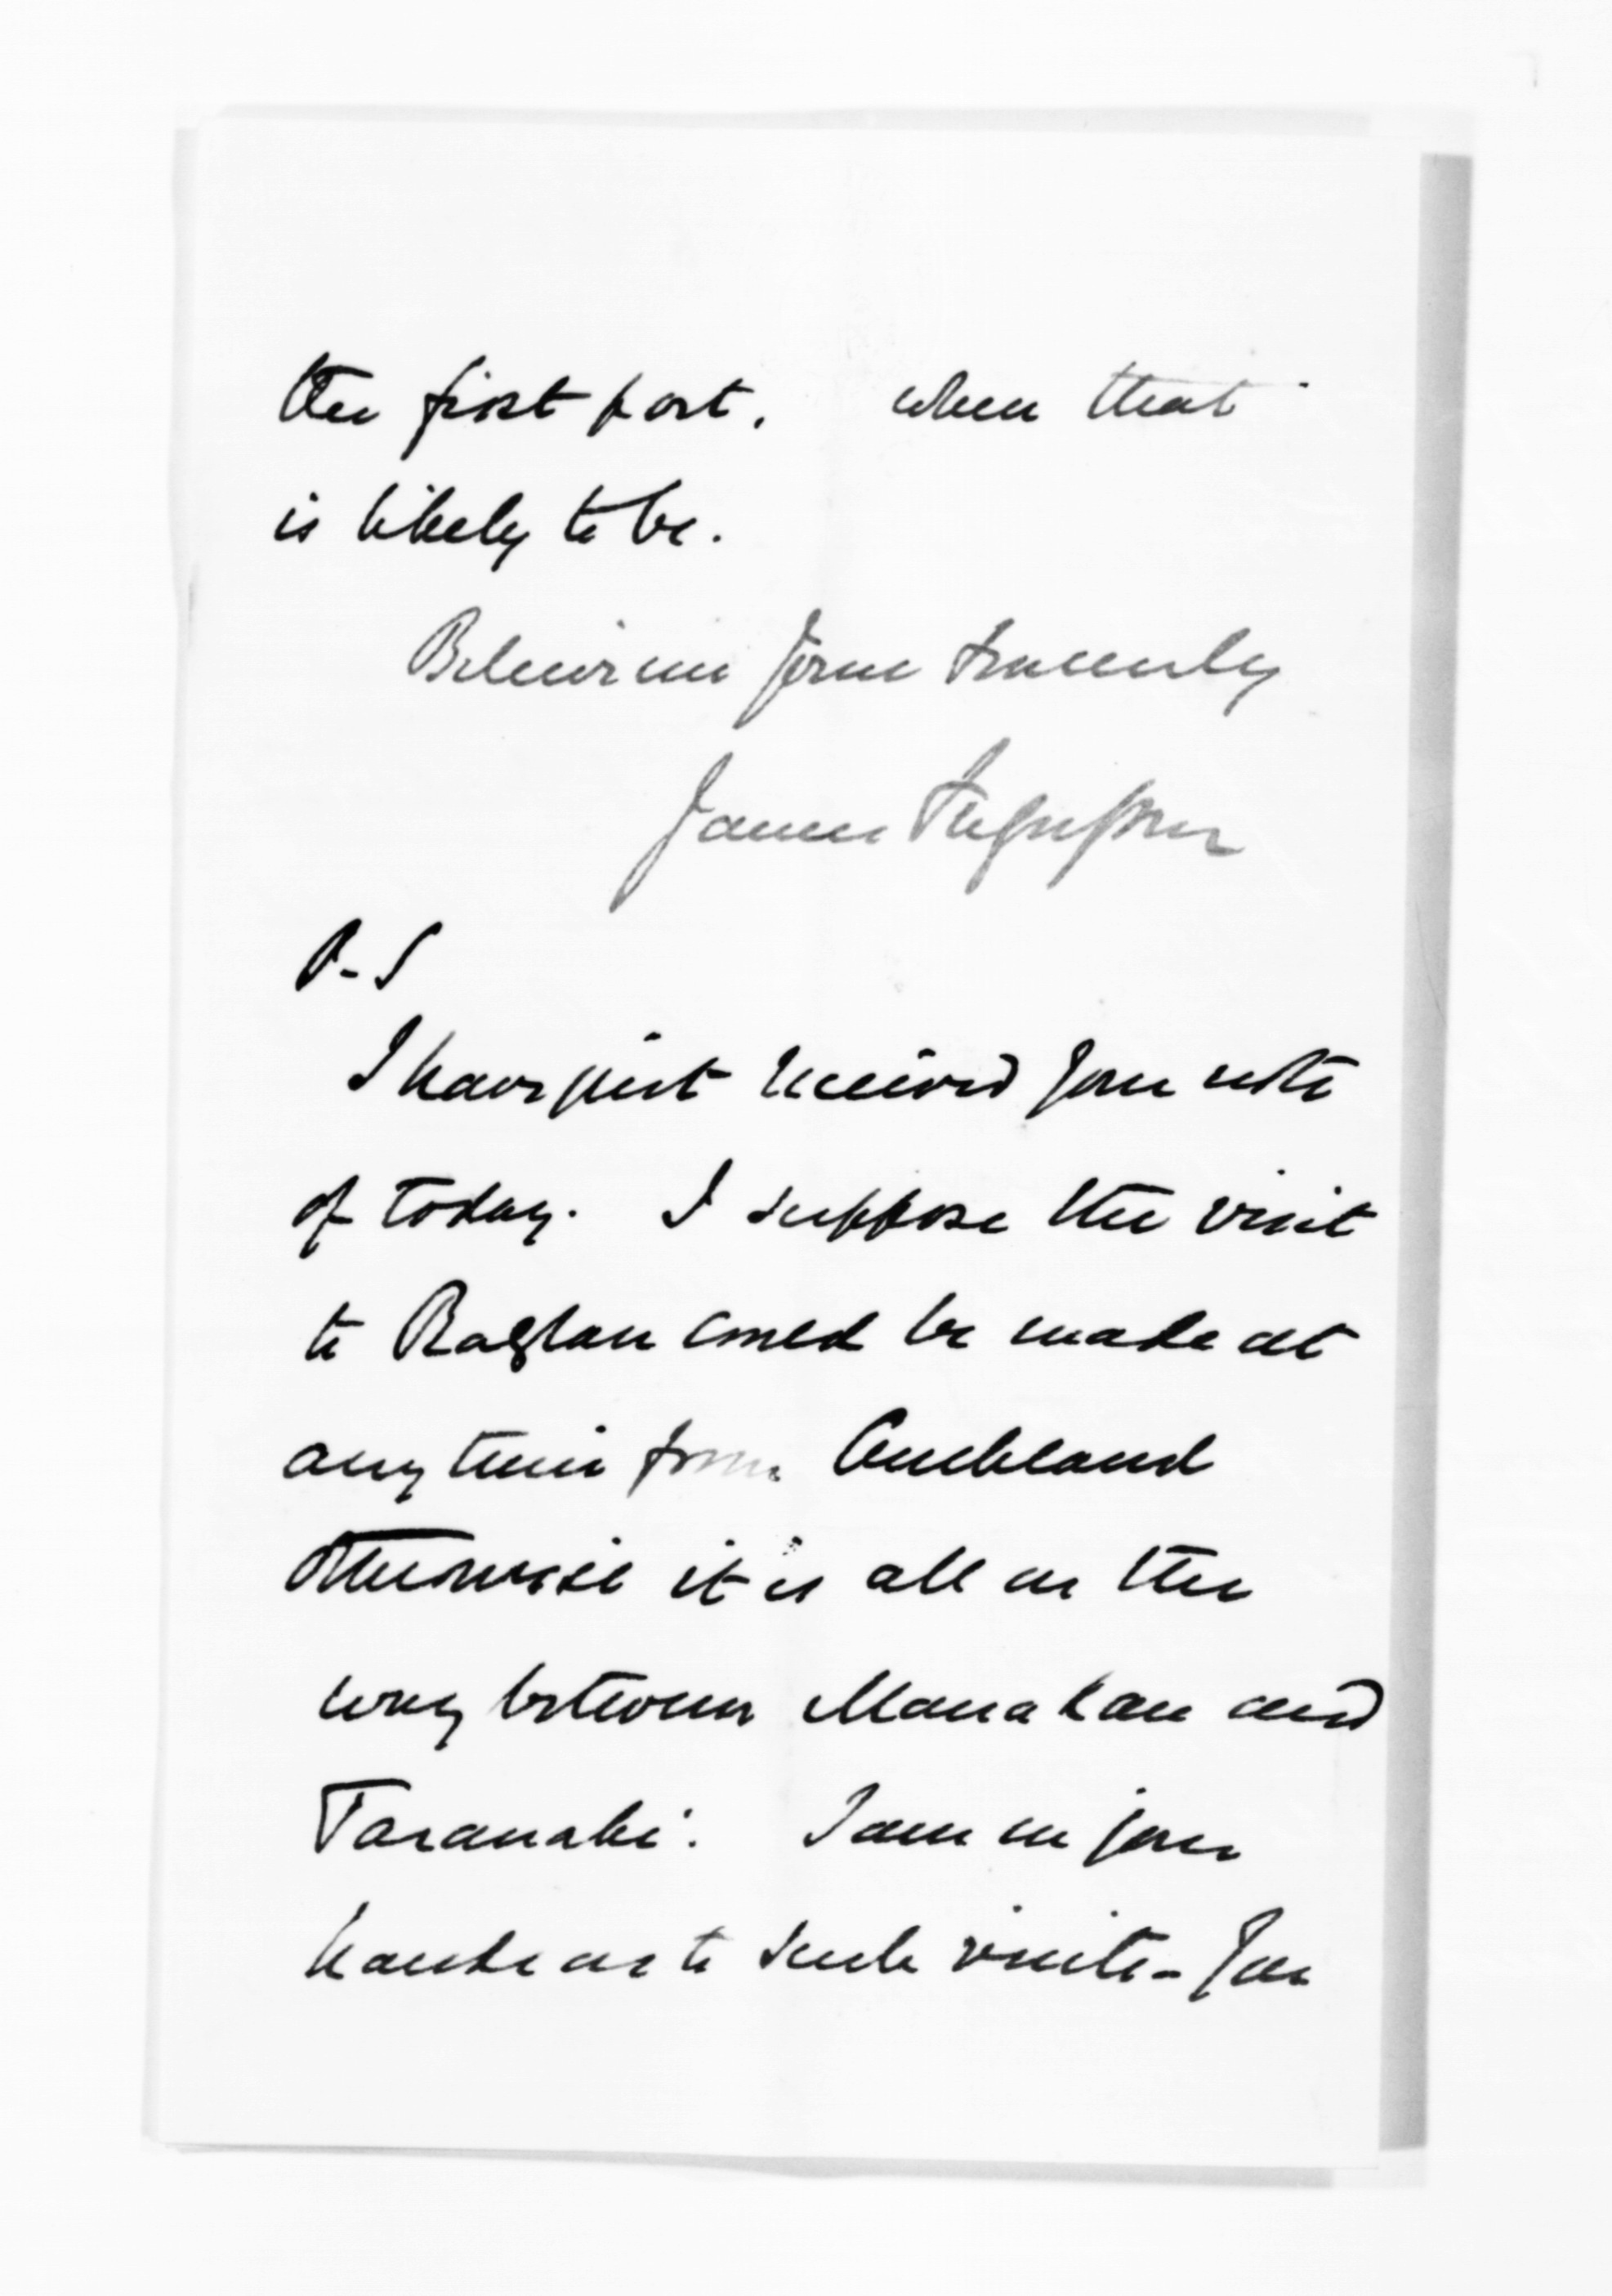 the first port, when that
is likely to be.
Believe me Yours sincerely
James Fergusson
P-S
I have just received your note
of today. I suppose the visit
to Raglan could be made at
any time from Auckland
Otherwise it is all on the
way between Manakau and
Taranaki. I am in your
hands as to such visits - You